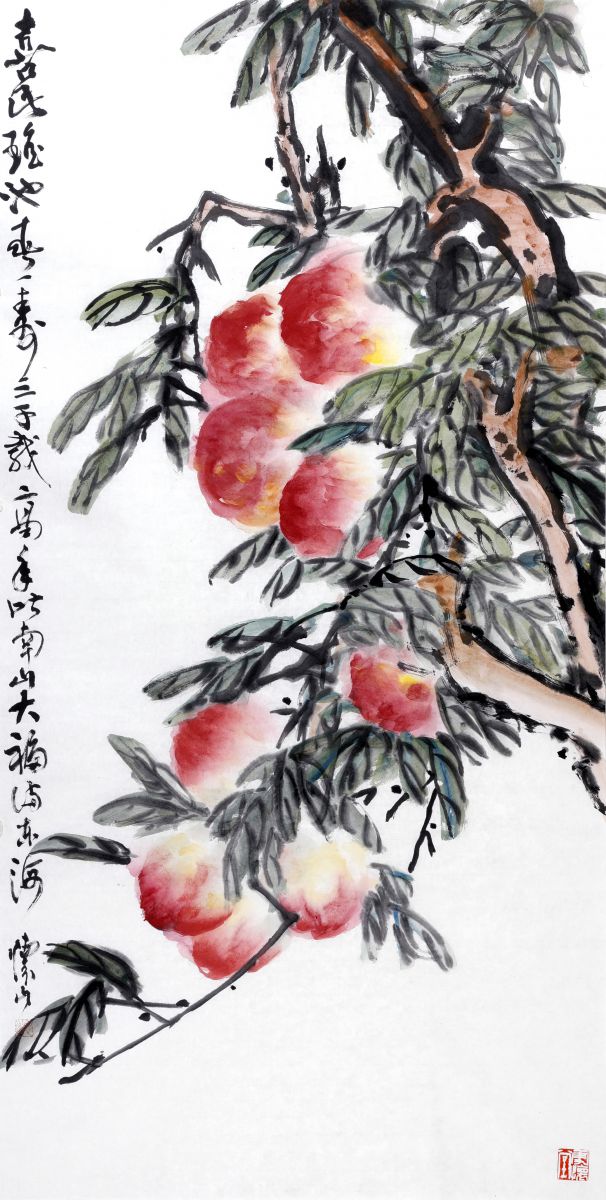 瑶池春一寿三千载高年比南山大福满东海
懷山